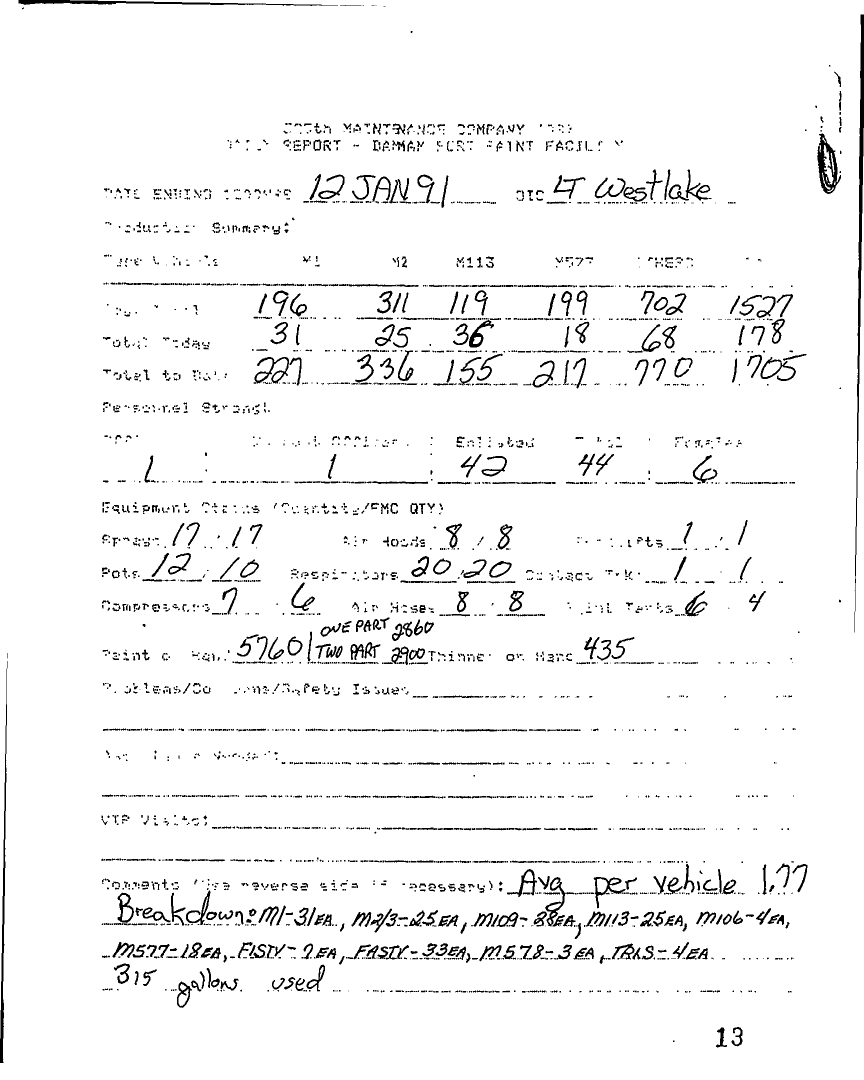 MAINTENANCE COMPANY
REPORT - DAMMAM PORT PAINT FACILITY
DATE ENDING 12 JAN 91 OIC LT Westlake
Production Summary:
Type Vehicle M1 M2 M113 M577 OTHERS
196 311 119 199 702 1527
Total Today 31 25 36 18 68 178
Total to Date 227 336 155 217 770 1705
Personnel Strength
Enlisted Total Females
1 1 42 44 6
Equipment Status (Quantity/FMC QTY)
Sprays 17 / 17 Air Hoods 8 / 8 1 / 1
Pots 12 / 10 Respirators 20 / 20 Contact Trk 1 / 1
Compressors 7 / 6 Air Hoses 8 / 8 Paint Tents 6 / 4
ONE PART 2860
Paint on Hand 5760 TWO PART 2900 Thinner on Hand 435
/Safety Issues
VIP Visits:
Comments (Use reverse side if necessary): Avg per vehicle 1.77
Breakdown: M1-31EA, M2/3-25EA, M109-28EA, M113-25EA, M106-4EA,
M577-18EA, FISTV-7EA, FASTV-33EA, M578-3EA, TRLS-4EA
315 gallons used
13